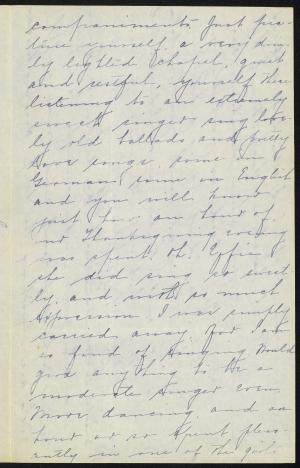 companiments. Just pic-
ture yourself a very dim-
ly lighted chapel, quiet
and restful, yourself there
listening to an extremely
sweet singer sing love-
ly old ballads and pretty
love songs, some in
German some in English
and you will know
just how an hour of
my Thanksgiving evening
was spent. Oh, Effie
she did sing so sweet
ly, and with so much
expression I was simply
carried away for I am
so fond of singing Would
give any thing to be a
moderate singer even.
More dancing, and an
hour or so spent pleas-
antly in one of the girls